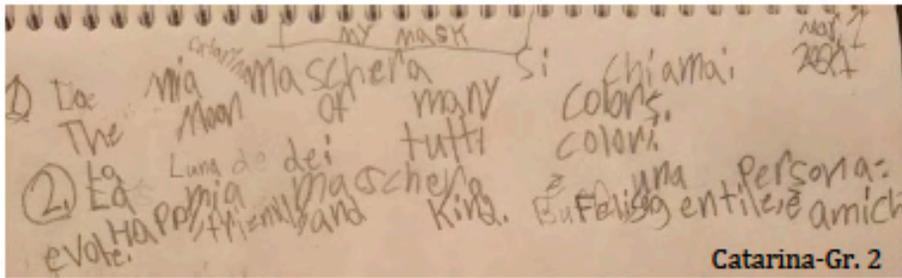 MY MASK
Mar. 7
1) La mia maschera si chiama:
The Moon of many colors.
La Luna dei tutti colori.
2. La mia maschera è una persona:
Happy and Kind. Felice gentile, e amich
evole.
Catarina-Gr. 2